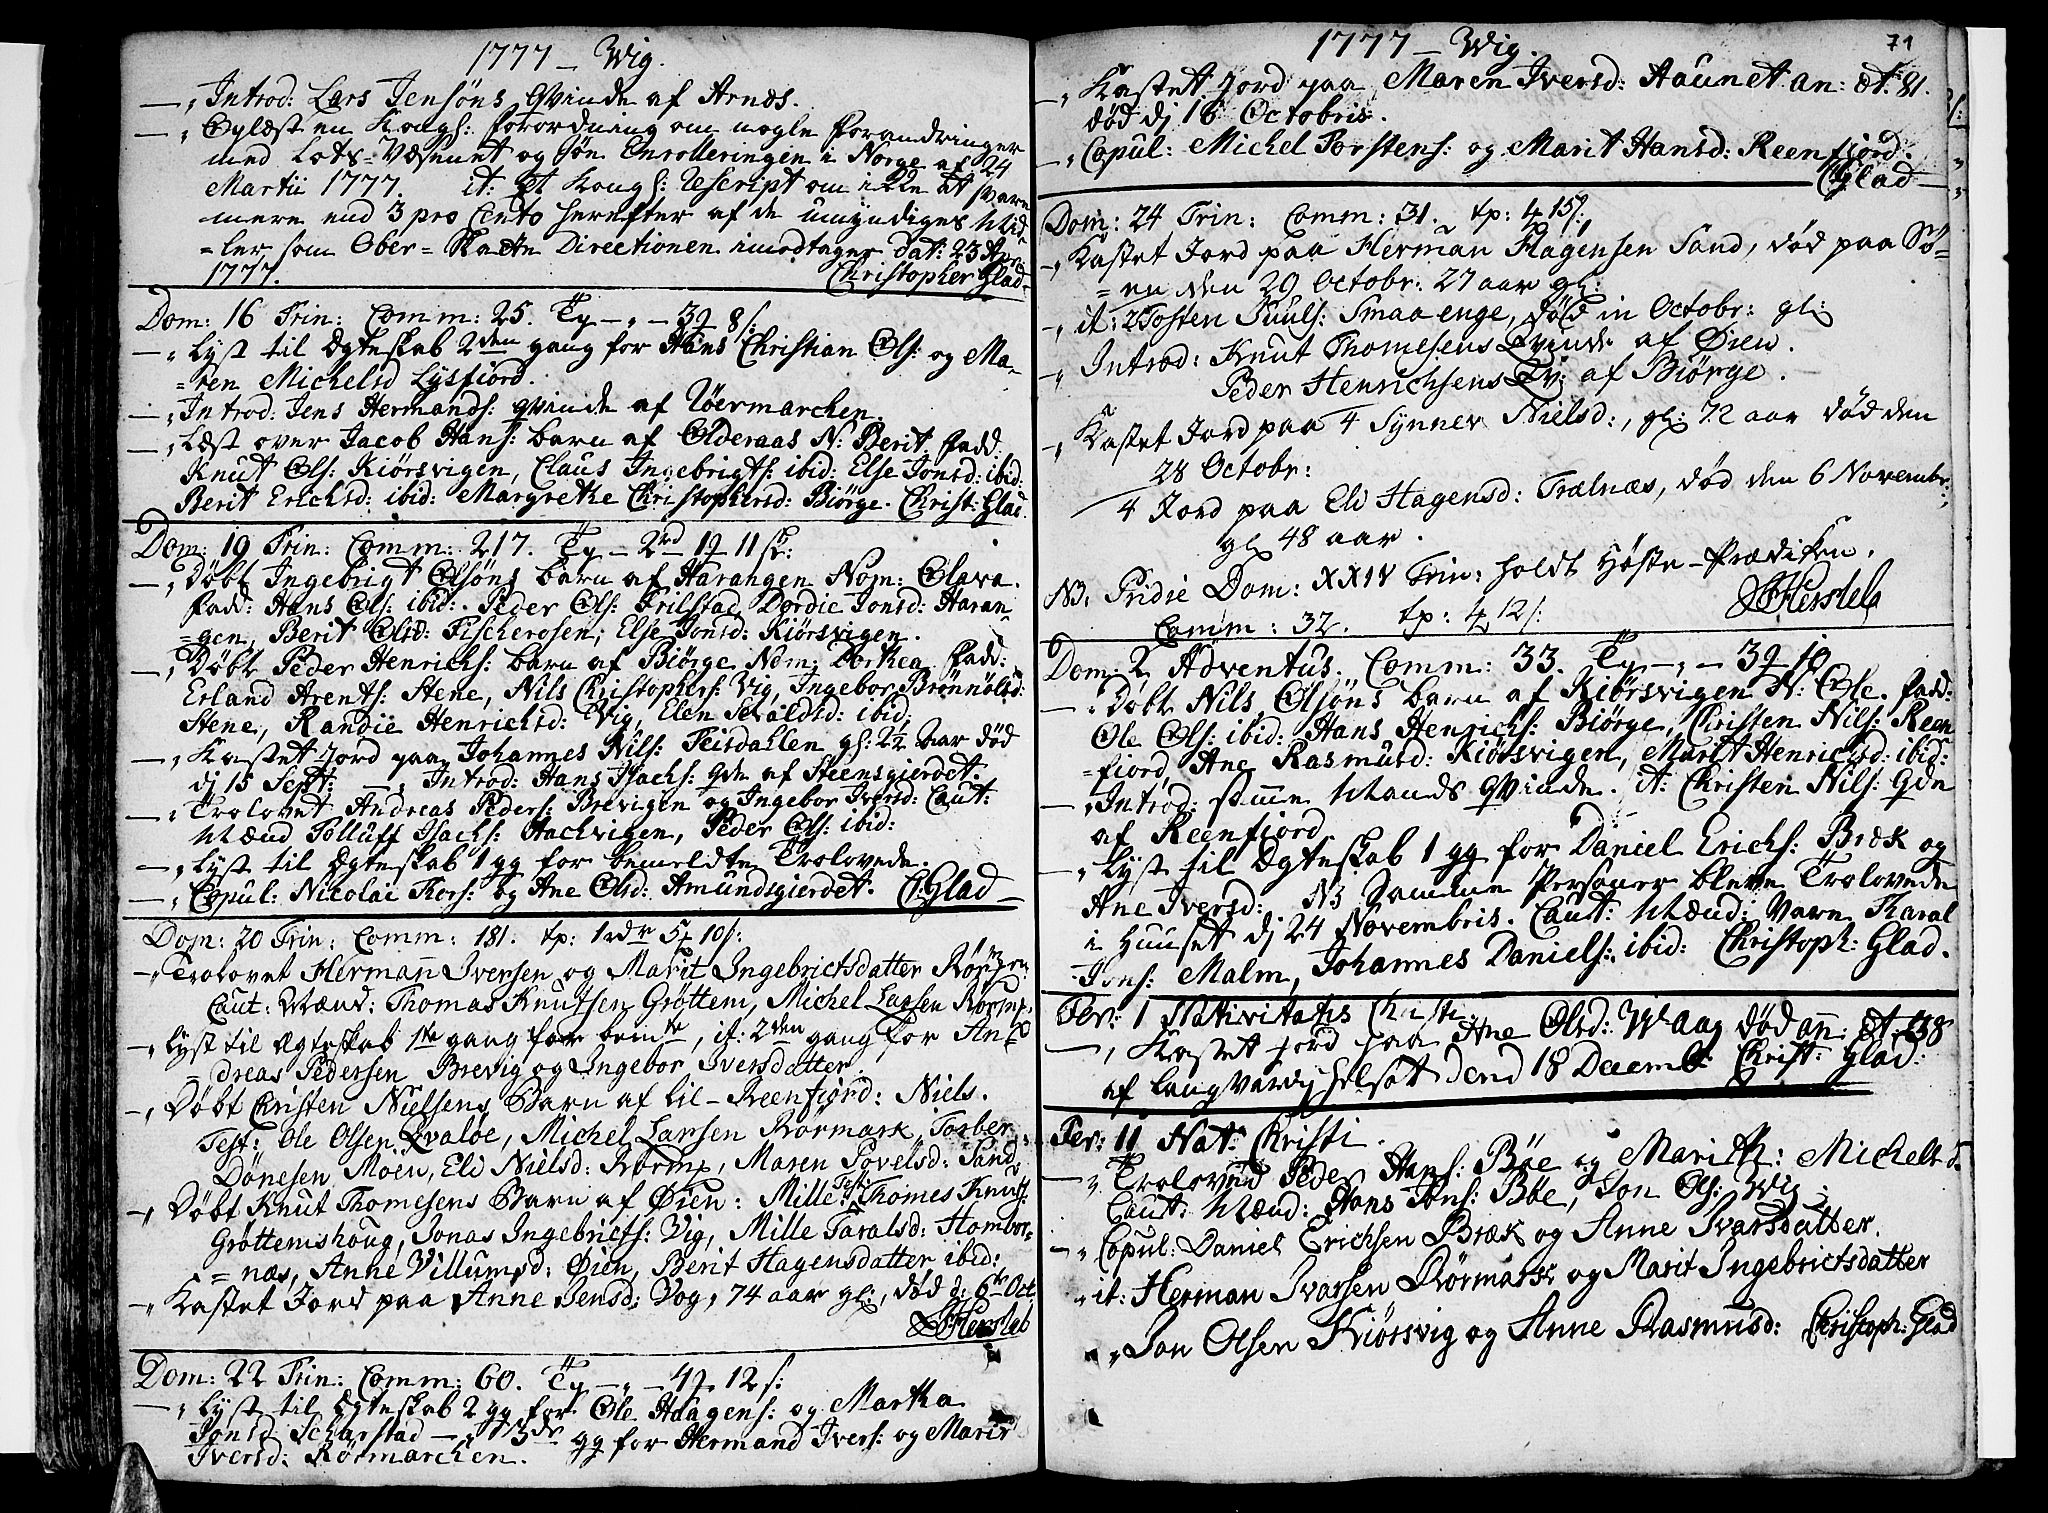 1777 – Wig.
–„ Introd: Lars Jensøns Qvinde af Arnæs.
–„ Oplæst en Kongl: forordning om nogle forandringer
med Lots-Væsenet og Søe Enrolleringen i Norge af 24
Martii 1777. it: et Kongl: Rescript om ikke at svare
mere end 3 pro Cento herefter af de umyndiges Mid-
=ler, som Ober-Skatte Directionen imodtager dat: 23 Apr:
1777. Christopher Glad
Dom: 16 Trin: Comm: 25. Tp –„– 3 8 s:
–„ Lyst til Ægteskab 2den gang for Hans Christian Ols: og Ma-
=ren Michelsd Lysfiord.
–„ Introd: Jens Hermands: qvinde af Röermarchen.
–„ Læst over Jacob Hans: barn af Olderaas N: Berit. fadd:
Knut Ols: Kiörsvigen, Claus Ingebrigts: ibid: Else Jonsd: ibid:
Berit Erichsd: ibid: Margrethe Christophersd: Biörge. Christ: Glad
Dom: 19 Trin: Comm: 217. Tp – 2rd 1 11 s:
–„ Döbt Ingebrigt Olsöns barn af Harangen Nom: Olava.
fadd: Hans Ols: ibid: Peder Ols: Frilstad, Dordie Jonsd: Haran-
=gen, Berit Olsd: Fischerosen, Else Jonsd: Kiörsvigen.
–„ Döbt Peder Henrichs: barn af Biörge Nom: Dorthea. fadd:
Erland Arents: Stene, Nils Christophers: Vig, Ingebor Brönnölsd:
Stene, Randie Henrichsd: Vig, Elen ibid:
–„ Kastet Jord paa Johannes Nils: Feisdahlen gl: 2½ aar död
dj 15 Sept: –„ Introd: Hans Isachs: Qde af Steensgierdet.
–„ Trolovet Andreas Peders: Brevigen og Ingebor Iversd: Caut:
Mænd Tolluff Isachs: Hachvigen, Peder Ols: ibid:
–„ Lyst til Ægteskab 1 gg for bemeldte Trolovede.
–„ Copul: Nicolai Kors: og Ane Olsd: Amundsgierdet. C: Glad
Dom: 20 Trin: Comm: 181. tp: 1 rdr 5 10 s:
–„ Trolovet Hermann Iversen og Marit Ingebrictsdatter
Caut: Mænd: Thomas Knutsen Gröttem, Michel Larsen
–„ Lyst til Ægteskab 1te gang for bemte, it: 2den gang for An-
dreas Pedersen Brevig og Ingebor Iversdatter.
–„ Döbt Christen Nielsens Barn af lil-Reenfiord: Niels.
Test: Ole Olsen Qvaløe, Michel Larsen Rörmark, Torber
Dönesen Moen, Eli Nielsd: Rörmp, Maren Povelsd: Sand
–„ Döbt Knut Thomesens Barn af Øien: Mille. Test: Thomes Knuts:
Gröttemshoug, Jonas Ingebricts: Vig, Mille Taralsd: Hombor-
=næs, Anne Villumsd: Øien, Berit Hagensdatter ibid:
–„ Kastet Jord paa Anne Jensd: Vog, 74 aar gl:, död d: 6te Oct
Hersleb
Dom: 22 Trin: Comm: 60. Tp –„– 4 12 s:
–„ Lyst til Ægteskab 2 gg for Ole Haagens: og Martha
Jonsd Scharstad –„ 3de gg for Hermand Ivers: og Marit
Iversd: Rörmarchen.
1777 – Wig. 71
–„ Kastet Jord paa Maren Iversd: Haunet an: æt: 81.
död dj 16 Octobris.
–„ Copul: Michel Torstens: og Marit Hansd: Reenfiord.
C: Glad
Dom: 24 Trin: Comm: 31. tp: 4 15 s:
–„ Kastet Jord paa Herman Hagensen Sand, död paa Sö-
=en den 29 Octobr: 27 aar gl:
–„ it: Tosten Juuls: Smaaenge, död in Octobr: gl:
–„ Introd: Knut Thomesens Qvinde af Øien.
Peder Henrichsens Qv: af Biörge.
–„ Kastet Jord paa Synnev Nielsd:, gl: 72 aar död den
28 Octobr:
Jord paa Eli Hagensd: Trælnæs, död den 6 Novembr:
gl: 48 aar.
NB. Pridie Dom: XXIV Trin: holdt Høste-Prædiken.
Comm: 32. tp: 4 12 s: Hersleb
Dom: 2 Adventus. Comm: 33. Tp –„– 3 10
–„ Döbt Nils Olsöns barn af Kiörsvigen N: Ole. fadd:
Ole Ols: ibid: Hans Henrichs: Biörge, Christen Nils: Reen
=fiord, Ane Rasmusd: Kiörsvigen, Marit Henrichsd: ibid:
–„ Introd: samme Mands qvinde. it: Christen Nils: Qde
af Reenfiord
–„ Lyst til Ægteskab 1 gg for Daniel Erichs: Bræk og
Ane Iversd: NB Samme Personer bleve Trolovede
i Huuset dj 24 Novembris. Caut: Mænd: Vare Haral
Jons: Malm, Johannes Daniels: ibid: Christoph: Glad.
Fer: 1 Nativitatis Christi.
–„ Kastet jord paa Ane Olsd: Waag död an: æt:
af langvarig helsot dend 18 Decemb: Christ: Glad:
Fer: II Nat: Christi.
–„ Trolovud Peder Hans: Böe og Marith: Michelsd.
Caut: Mænd: Hans Jons: Böe, Jon Ols: Wig:
–„ Copul: Daniel Erichsen Bræk og Anne Ivarsdatter.
„ it: Herman Ivarsen Rörmark og Marit Ingebrictsdatter
„ Jon Olsen Kiörsvig og Anne Rasmusd: Christoph: Glad